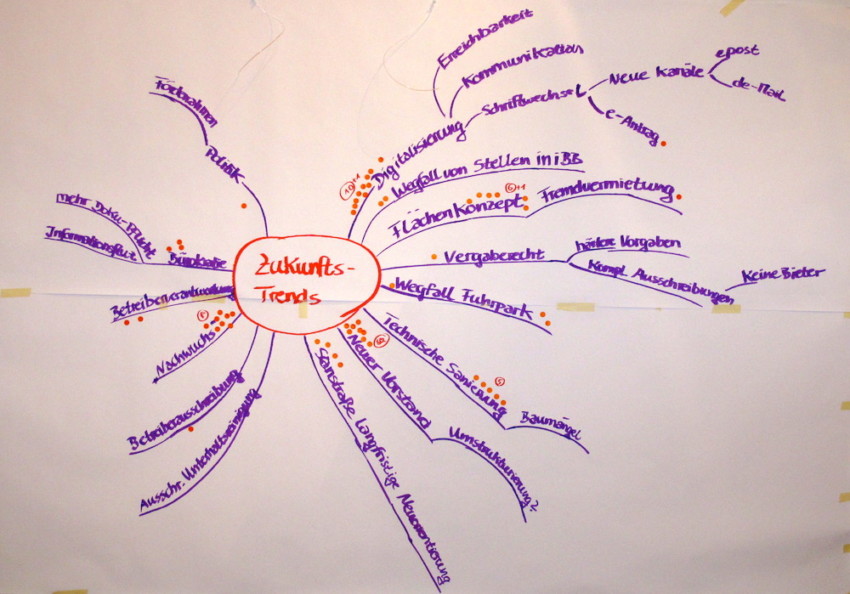 Zukunfts-
Trends
Politik
Digitalisierung
Erreichbarkeit
Kommunikation
Schriftwechsel
Neue Kanäle
epost
de-Mail
e-Antrag
Wegfall von Stellen in iBB
Flächenkonzept
Fremdvermietung
Vergaberecht
härtere Vorgaben
Kompl. Ausschreibungen
Keine Bieter
Wegfall Fuhrpark
Technische Sanierung
Baumängel
Neuer Vorstand
Umstrukturierung?
Langfristige Neuorientierung
Ausschr. Unterhaltsreinigung
Betreiberausschreibung
Nachwuchs
Betreiberverantwortung
mehr Doku-Pflicht
Informationsflut
10
6
5